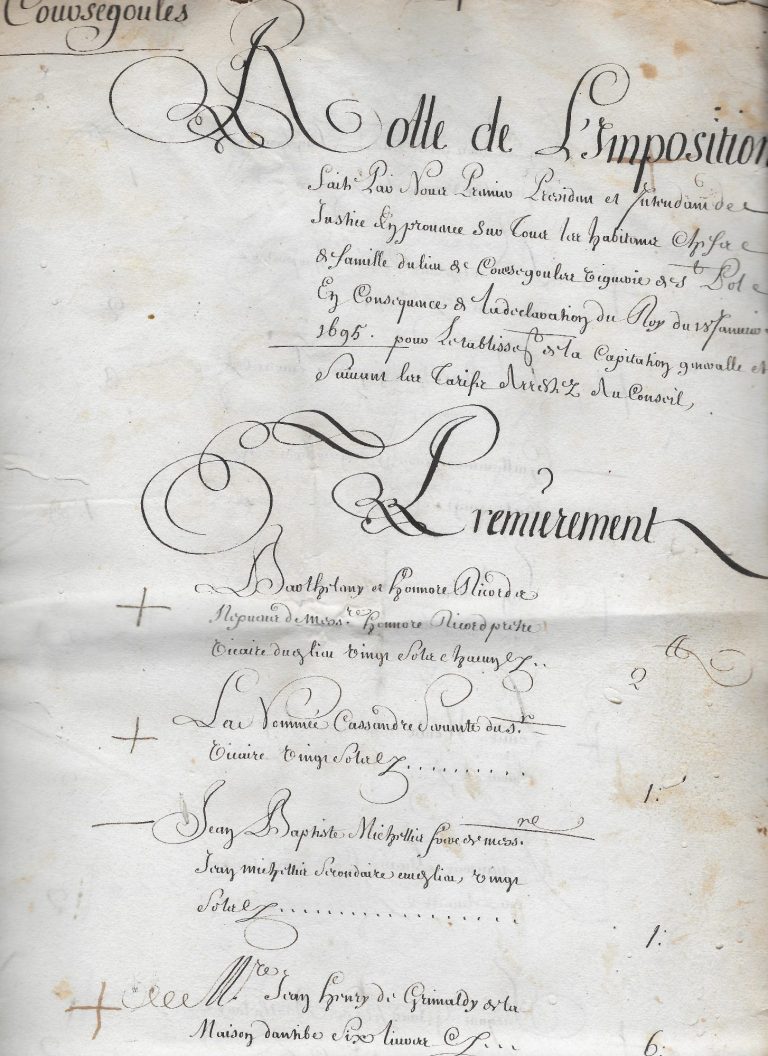 Coursegoules
Rolle de L'Imposition
faite Par Nous Premier Presidant et Intendant de
Justice En provance Sur Tous les habitans Chefs
de famille du lieu de Coursegoules Viguerie de St Pol
En Consequance de la declaration du Roy du 18 Janvier
1695. pour L'etablisset de la Capitation generalle et
Suivant les Tarifs Arrestez Au Conseil,
Premierement
Barthelamy et honnore Ricord
Nepveux de Messre honnore Ricord pretre
Vicaire dud lieu vingt Sols chacun
2 tt
La Nommée Cassandre Servante du sr
Vicaire vingt Sols ..........
1:
Jean Baptiste Michellis frere de messre
Jean michellis Secondaire aud lieu, vingt
Sols ..................
1:
Mre Jean henry de Grimaldy de la
Maison dantibe Six livres ...
6: